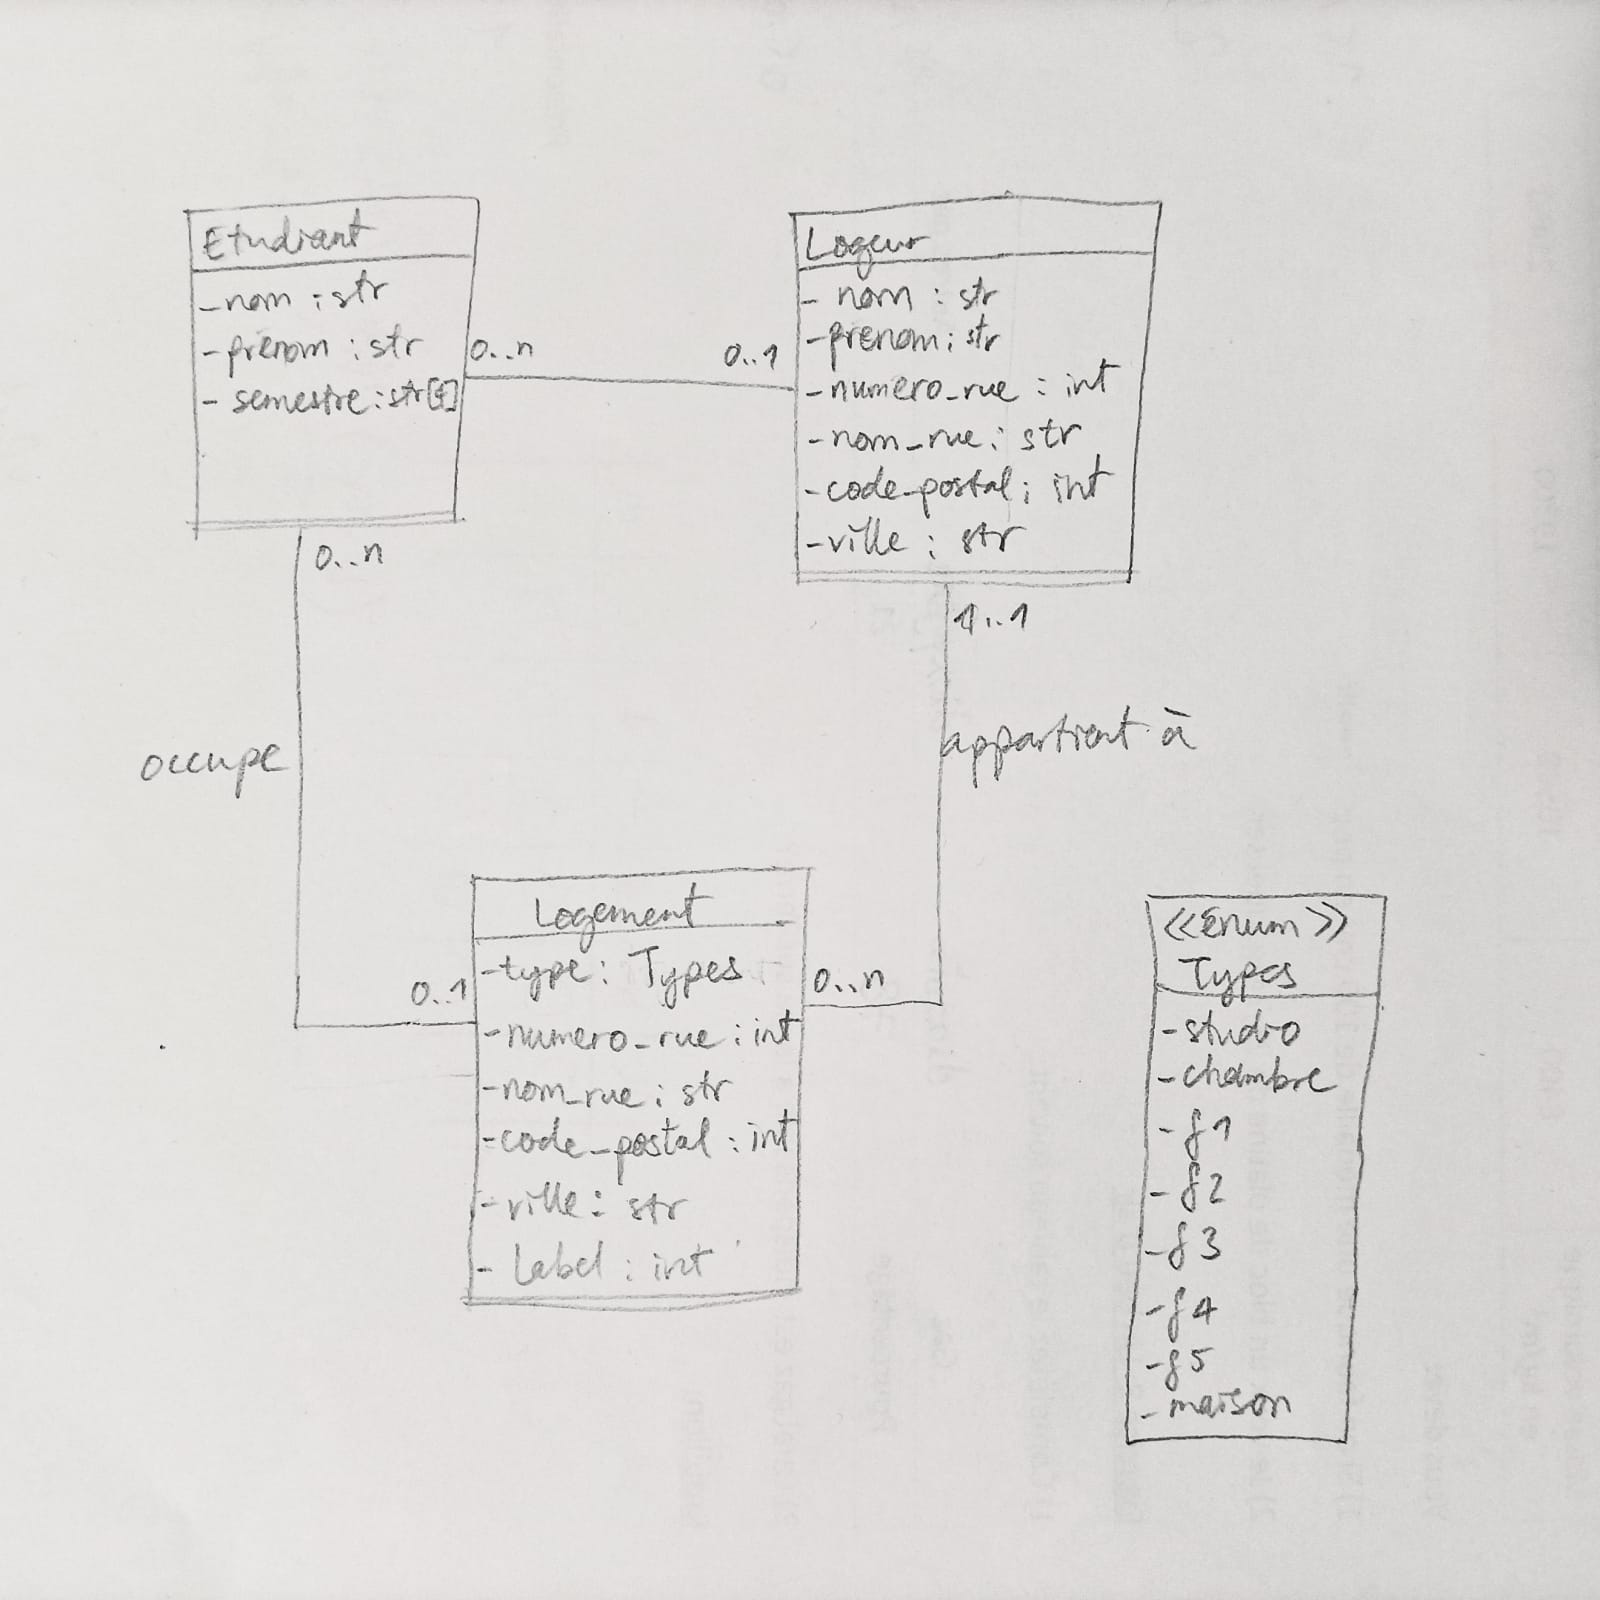 Etudiant
-nom : str
-prenom : str
- semestre : str[]
0..n
0..n
Logeur
- nom : str
-prenom : str
-numero_rue : int
-nom_rue : str
-code_postal : int
-ville : str
0..1
1..1
occupe
appartient à
Logement
-type : Types
-numero_rue : int
-nom_rue : str
-code_postal : int
-ville : str
- label : int
0..1
0..n
<<enum>>
Types
-studio
-chambre
-f1
-f2
-f3
-f4
-f5
-maison